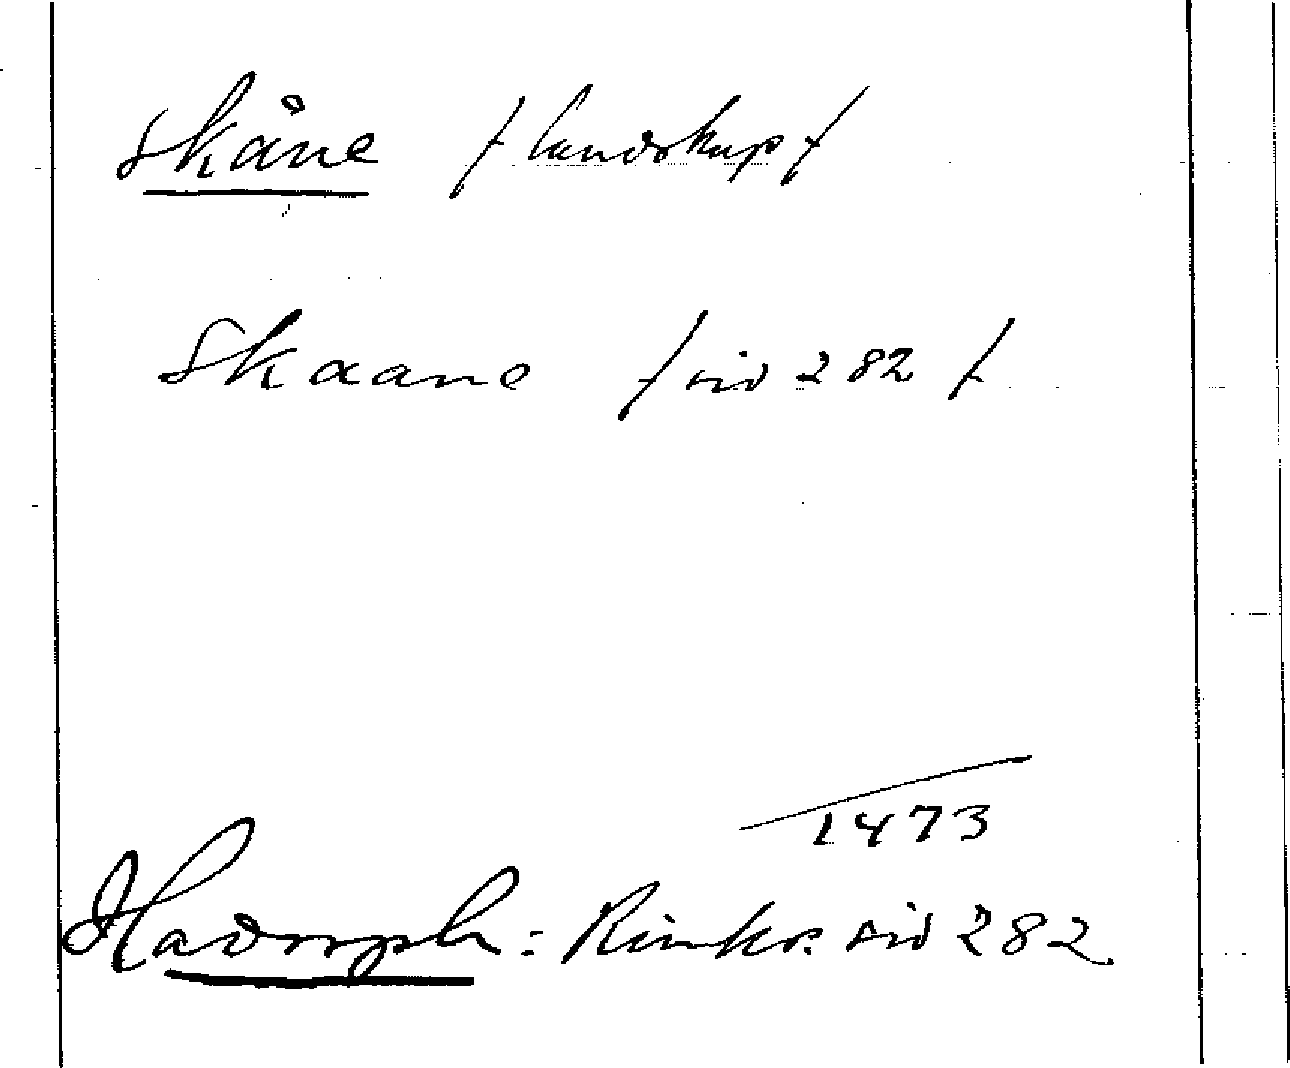 Skåne / landskap /
Skaane / sid 282 /
1473
Hadorph: Rimkr. sid 282